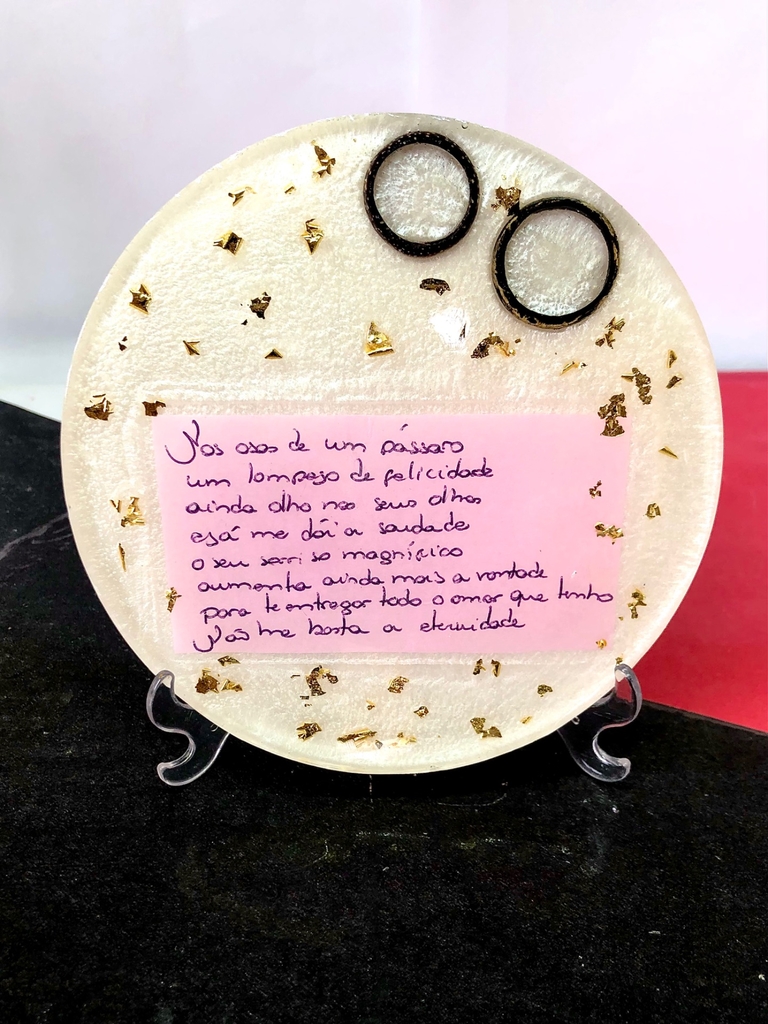 Nas asas de um pássaro
um lampejo de felicidade
ainda olho nos seus olhos
e já me dói a saudade
o seu sorriso magnífico
aumenta ainda mais a vontade
para te entregar todo o amor que tenho
Não me basta a eternidade